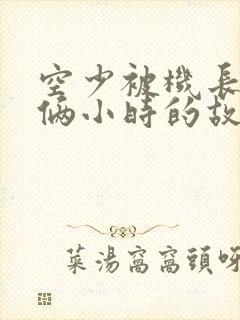 空少被機長
俩小時的故
菜湯窩窩頭呀